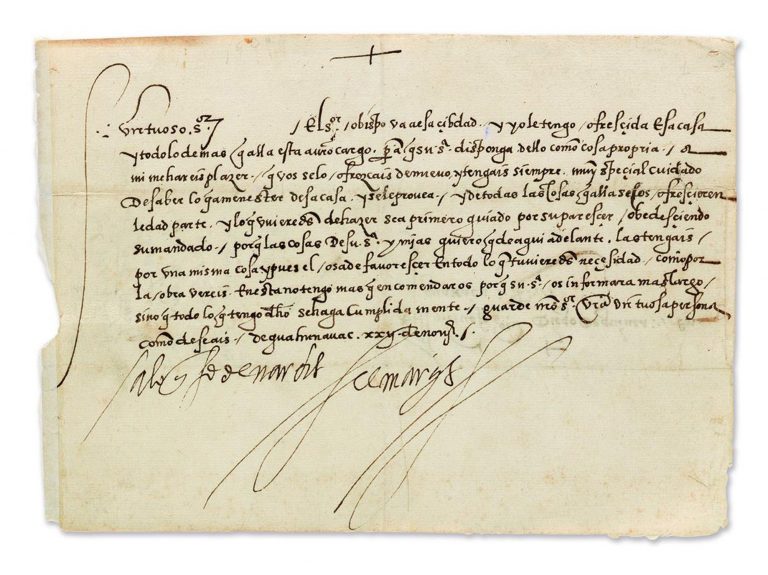 virtuoso sor / El sor / obispo va a esa cibdad . y yo le tengo / ofrescida esa casa
y todo lo demas q alla esta a vro cargo . pa q su sa disponga dello como cosa propria / a
mi me hareis plazer / q vos se lo / ofrezcais de nuevo y tengais siempre . muy special cuidado
de saber lo q a menester de sa casa . y se le provea / y de todas las cosas q alla se os / ofrescieren
le dad parte . y lo q uvieredes de hazer sea primero guiado por su parescer / obedesciendo
su mandado / porq las cosas de su sa y mias quiero q de aqui adelante . las tengais /
por una misma cosa y pues el / os a de favorescer en todo lo q tuvieredes necesidad / como por
la / obra vereis . en esta no tengo mas q encomendaros porq su sa / os informara mas largo /
sino q todo lo q tengo dho se haga cumplida mente / guarde nro sor vra virtuosa persona
como deseais / de guahunavac . xxv de novie /
el marqs